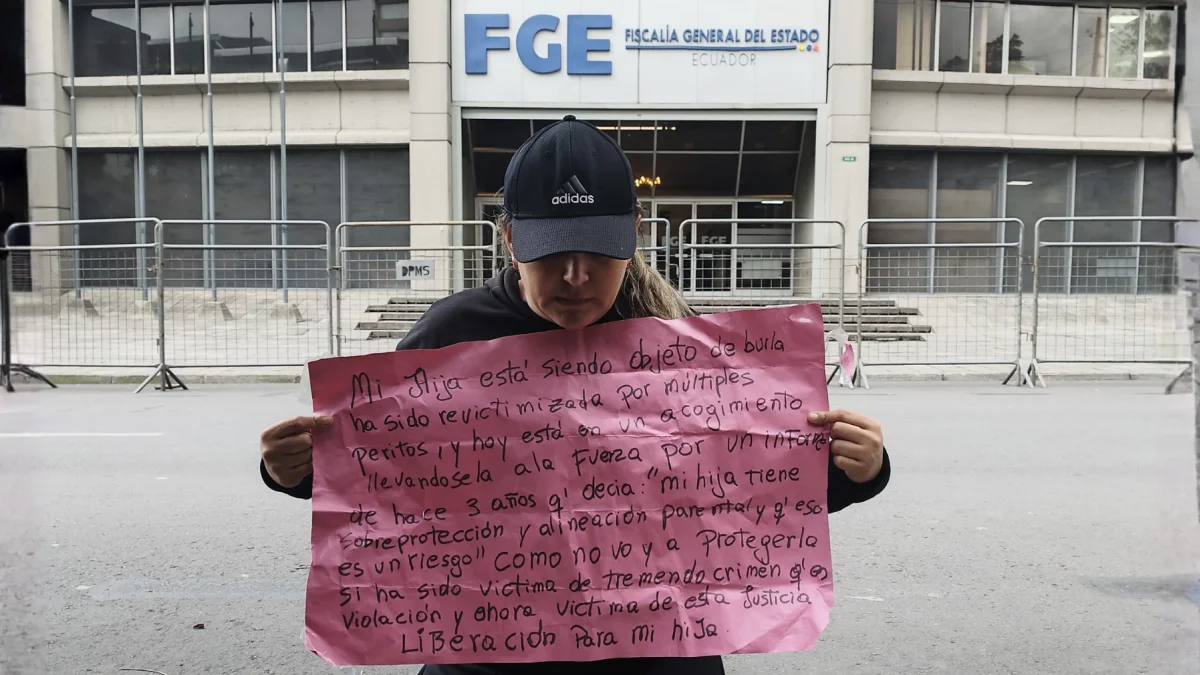 FGE
FISCALÍA GENERAL DEL ESTADO
ECUADOR
adidas
DPMS
FGE
Mi Hija está siendo objeto de burla
ha sido revictimizada por múltiples
peritos, y hoy está en un acogimiento
llevandosela a la Fuerza por un informe
de hace 3 años q' decia: "mi hija tiene
sobreprotección y alineación parental y q' eso
es un riesgo" como no voy a Protegerla
si ha sido victima de tremendo crimen q' es
violación y ahora victima de esta Justicia
LiBeración Para mi hija.